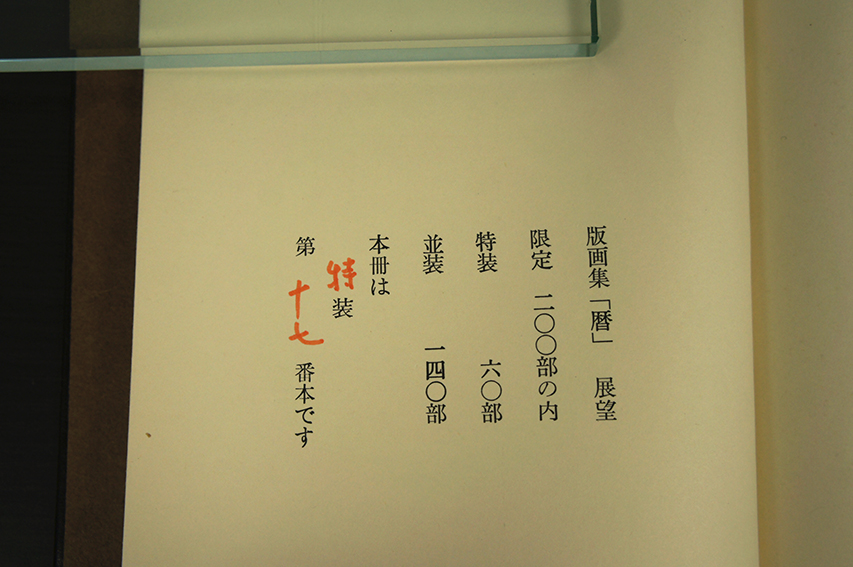 版画集「暦」 展望
限定 二〇〇部の内
特装 六〇部
並装 一四〇部
本冊は
特装
第 十七 番本です